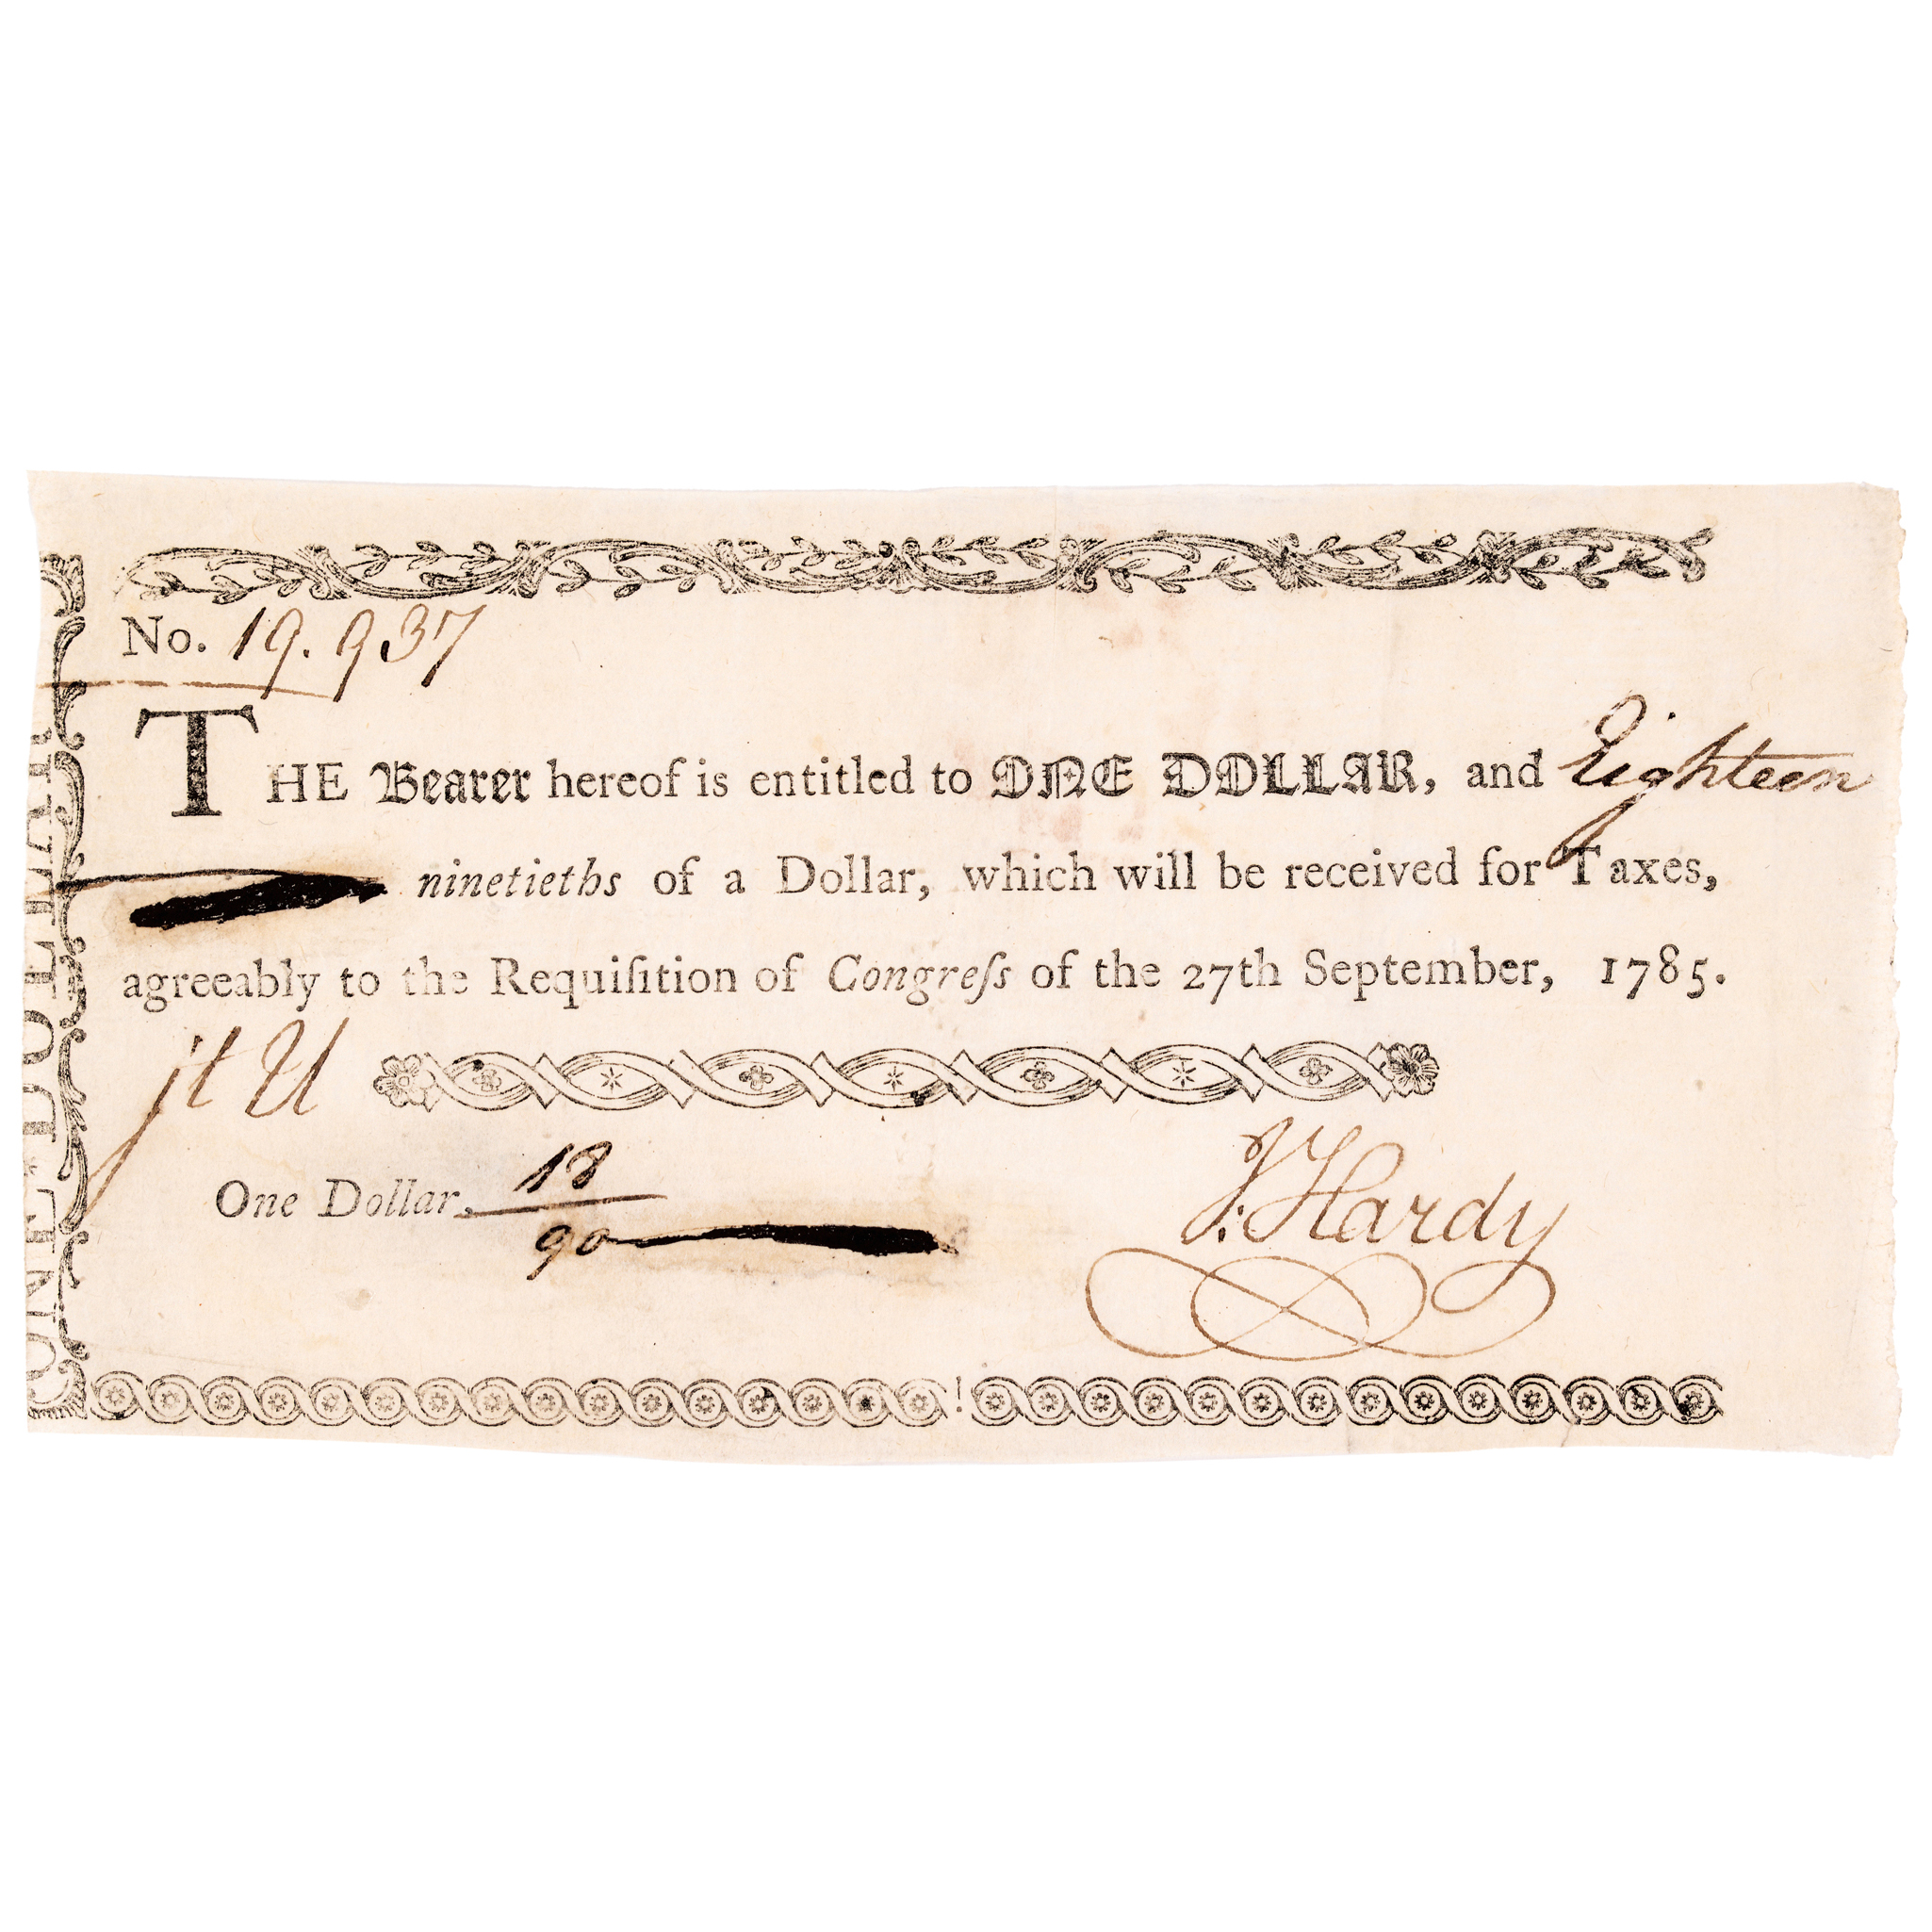 No. 19.937
THE Bearer hereof is entitled to ONE DOLLAR, and Eighteen
ninetieths of a Dollar, which will be received for Taxes,
agreeably to the Requiſition of Congreſs of the 27th September, 1785.
One Dollar, 18/90
J: Hardy
ONE * DOLLAR